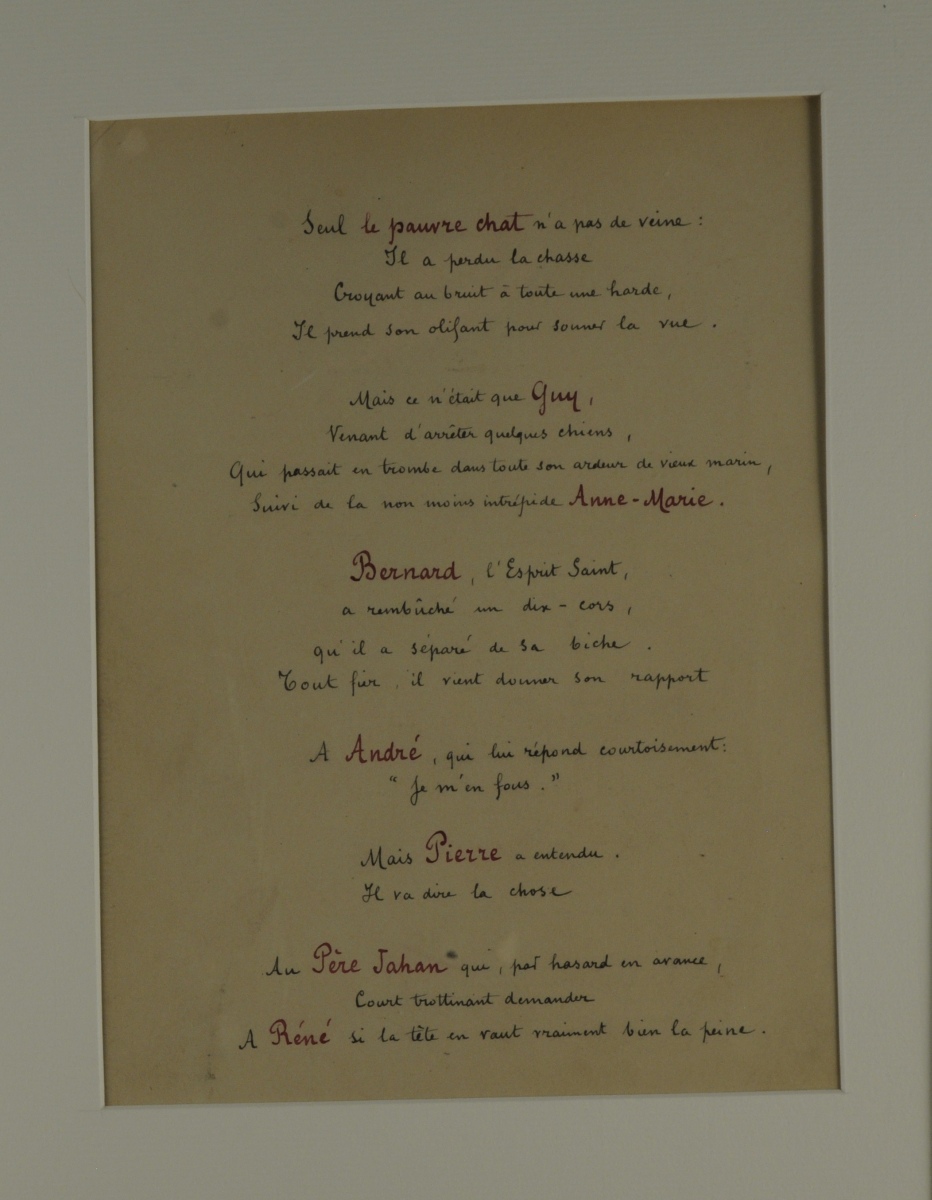 Seul le pauvre chat n'a pas de veine :
Il a perdu la chasse
Croyant au bruit à toute une harde,
Il prend son olifant pour sonner la vue .
Mais ce n'était que Guy,
Venant d'arrêter quelques chiens,
Qui passait en trombe dans toute son ardeur de vieux marin,
Suivi de la non moins intrépide Anne-Marie.
Bernard, l'Esprit Saint,
a rembûché un dix-cors,
qu'il a séparé de sa biche .
Tout fier, il vient donner son rapport
A André, qui lui répond courtoisement:
"Je m'en fous."
Mais Pierre a entendu .
Il va dire la chose
Au Père Jahan qui, par hasard en avance,
Court trottinant demander
A Réné si la tête en vaut vraiment bien la peine .